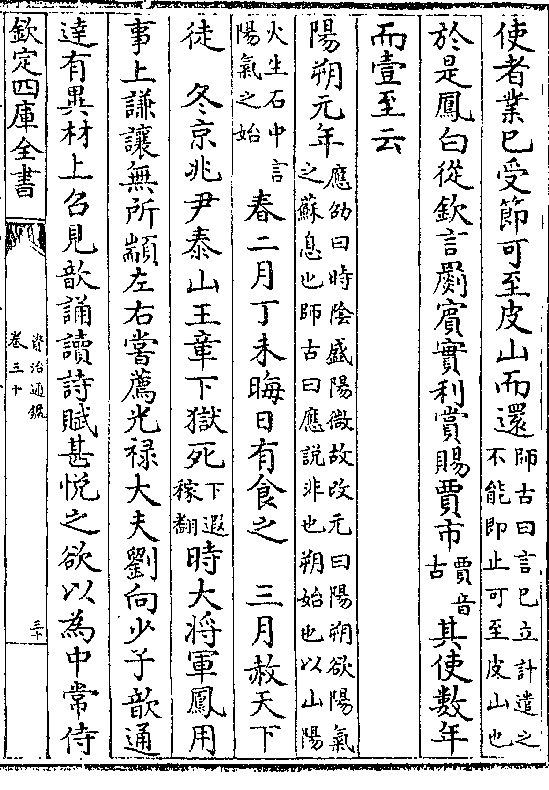 使者業已受節可至皮山而還師古曰言已立計遣之不能即止可至皮山也
於是鳳白從欽言罽賓實利賞賜賈市賈音古其使數年
而壹至云
陽朔元年應劭曰時陰盛陽微故改元曰陽朔欲陽氣之蘇息也師古曰應說非也朔始也以山陽
火生石中言陽氣之始春二月丁未晦日有食之 三月赦天下
徒 冬京兆尹泰山王章下獄死下遐稼翻時大將軍鳳用
事上謙讓無所顓左右嘗薦光禄大夫劉向少子歆通
達有異材上召見歆誦讀詩賦甚悦之欲以為中常侍
欽定四庫全書
資治通鑑
卷三十
三十